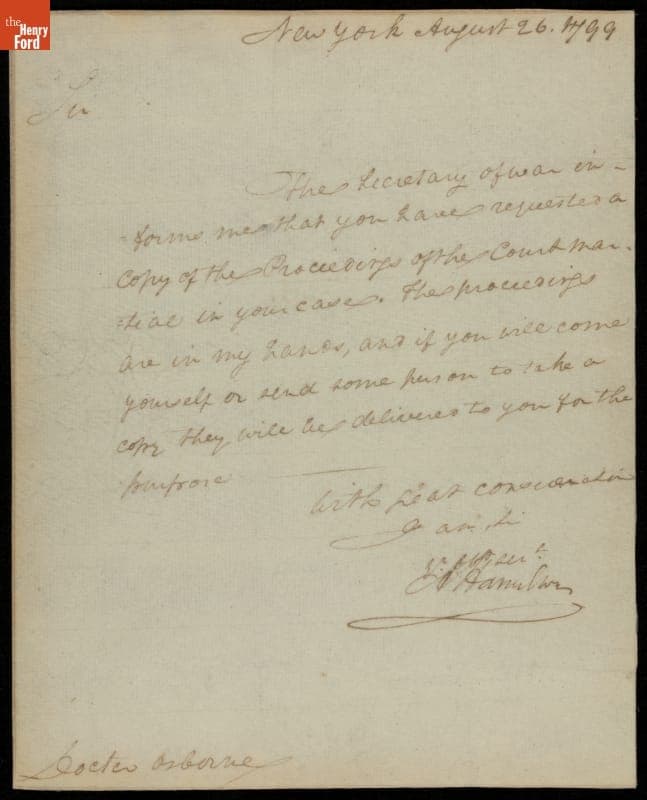 the
Henry
Ford
New York August 26. 1799
Sir
The Secretary of war in-
-forms me that you have requested a
copy of the Proceedings of the Court mar-
-tial in your case. The proceedings
are in my hands, and if you will come
yourself or send some person to take a
copy they will be delivered to you for the
purpose
With great consideration
I am Sir
Yr. Obt. Sert.
A Hamilton
Doctor Osborne